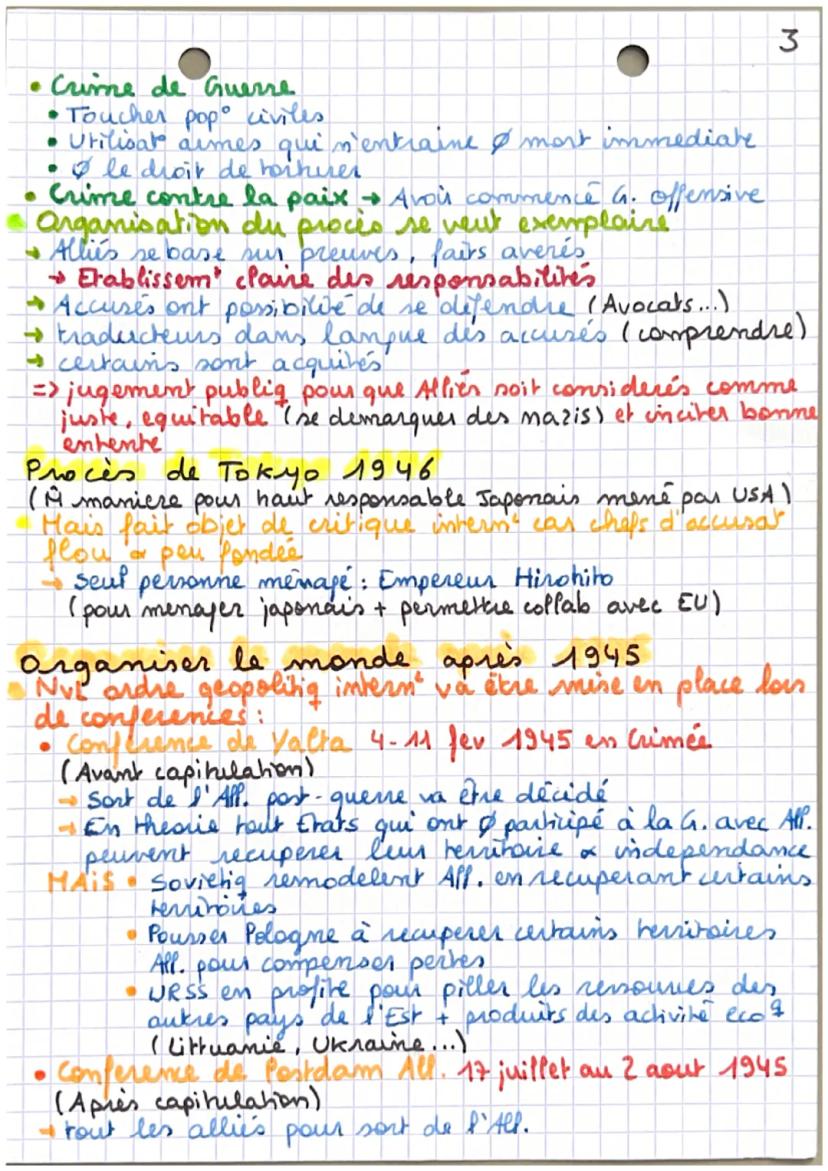 3
• Crime de Guerre
• Toucher pop° civiles
• Utilisat° armes qui n'entraine Ø mort immediate
• Ø le droit de torturer
• Crime contre la paix → Avoir commencé G. offensive
• Organisation du procès se veut exemplaire
→ Alliés se base sur preuves, faits averés
→ Etablissemt claire des responsabilités
→ Accusés ont possibilité de se défendre (Avocats...)
→ traducteurs dans langue des accusés (comprendre)
→ certains sont acquités
=> jugement publiq pour que Alliés soit considerés comme
juste, equitable (se demarquer des nazis) et inciter bonne
entente
Procès de Tokyo 1946
(M̂ maniere pour haut responsable Japonais mené par USA)
• Mais fait objet de critique internt car chefs d'accusat°
flou & peu fondée
→ Seul personne ménagé : Empereur Hirohito
(pour menager japonais + permettre collab avec EU)
Organiser le monde après 1945
• Nvt ordre geopolitiq internt va être mise en place lors
de conferences :
• Conférence de Yalta 4-11 fev 1945 en Crimée
(Avant capitulation)
→ Sort de l'All. post-guerre va être décidé
→ En theorie tout Etats qui ont Ø participé à la G. avec All.
peuvent recuperer leur territoire & independance
MAIS • Sovietiq remodelent All. en recuperant certains
territoires
• Pousser Pologne à recuperer certains territoires
All. pour compenser pertes
• URSS en profite pour piller les ressources des
autres pays de l'Est + produits des activité ecoq
(Littuanie, Ukraine...)
• Conference de Postdam All. 17 juillet au 2 aout 1945
(Après capitulation)
→ tout les alliés pour sort de l'All.